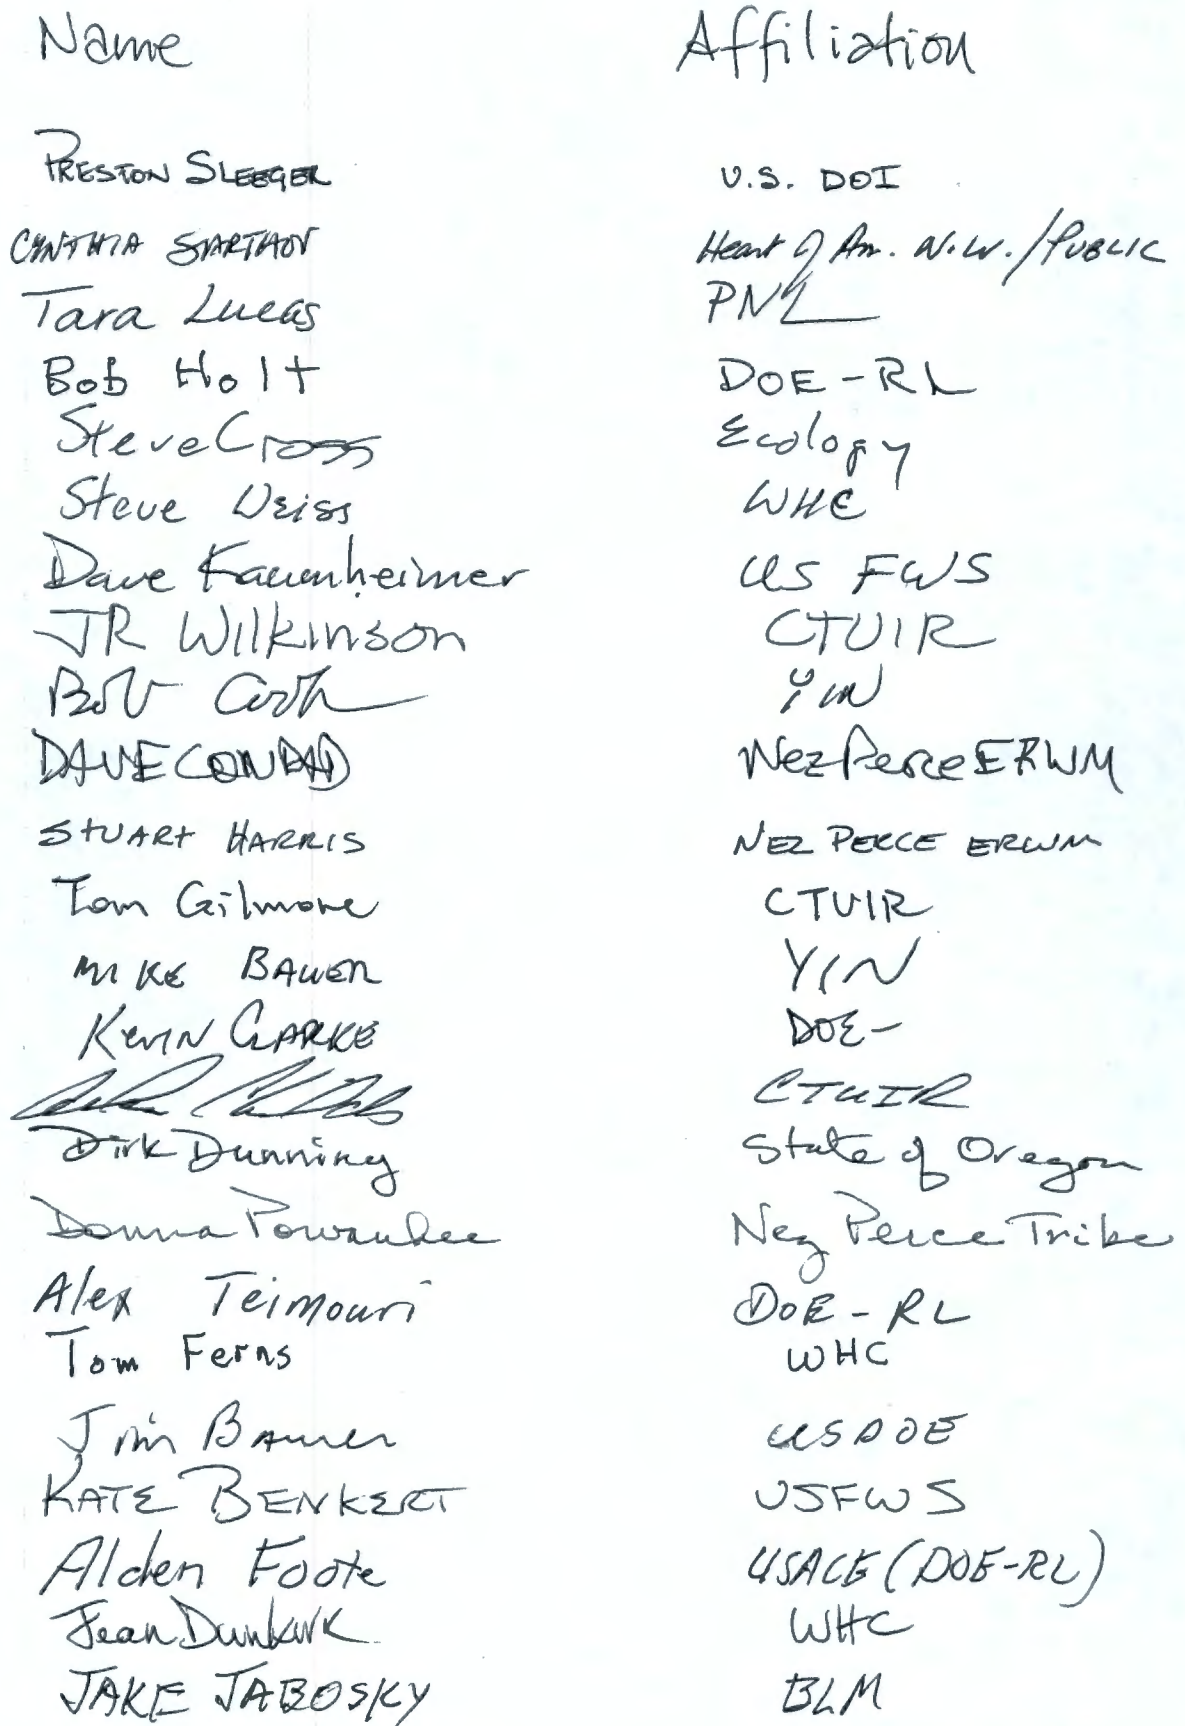 Name Affiliation
PRESTON SLEEGER U.S. DOI
CYNTHIA Heart of Am. N.W./PUBLIC
Tara Lucas PNL
Bob Holt DOE-RL
Steve Cross Ecology
Steve Weiss WHC
Dave Kaumheimer US FWS
JR Wilkinson CTUIR
Bob Cook YIN
DAVE CONRAD Nez Perce ERWM
STUART HARRIS NEZ PERCE ERWM
Tom Gilmore CTUIR
MIKE BAUER YIN
KEVIN CLARKE DOE-
CTUIR
Dirk Dunning State of Oregon
Donna Powaukee Nez Perce Tribe
Alex Teimouri DOE-RL
Tom Ferns WHC
Jim Bauer USDOE
KATE BENKERT USFWS
Alden Foote USACE (DOE-RL)
Jean Dunkirk WHC
JAKE JABOSKY BLM